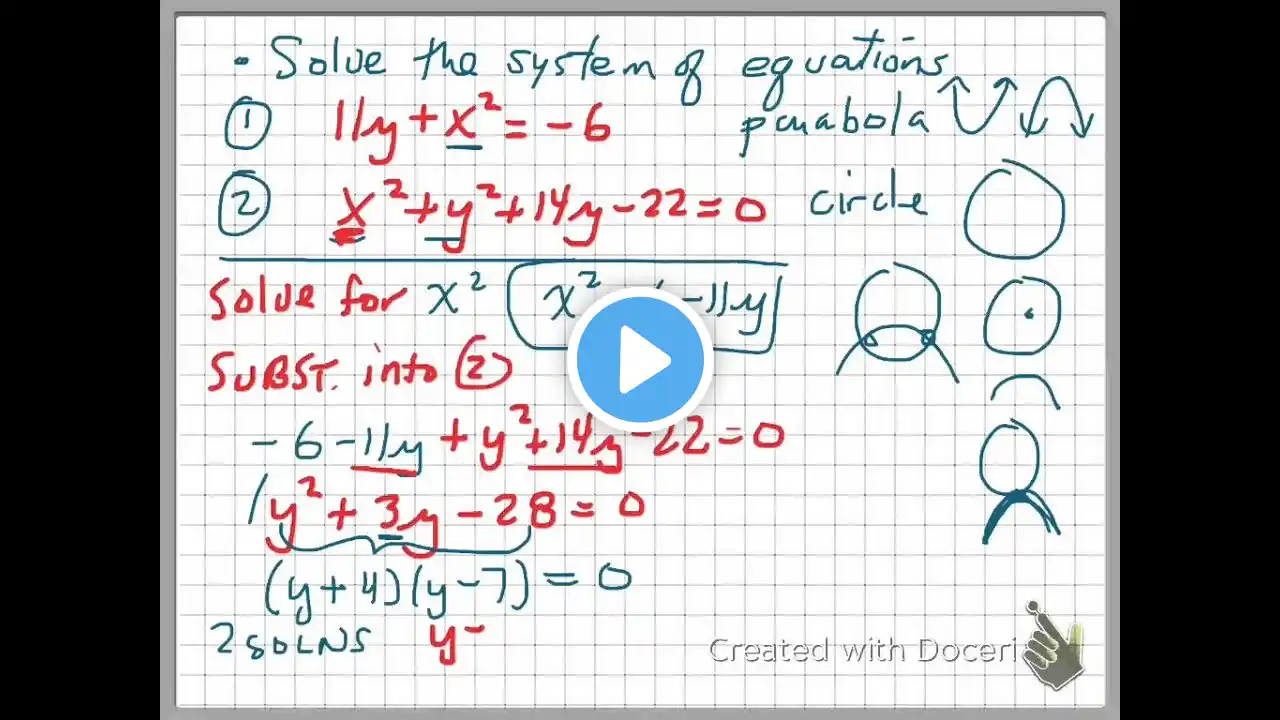 • Solve the system of equations
① 11y + x² = -6 parabola
② x² + y² + 14y - 22 = 0 circle
Solve for x² x² -11y
SUBST. into ②
-6 -11y + y² + 14y - 22 = 0
1y² + 3y - 28 = 0
(y + 4)(y - 7) = 0
2 SOLNS y -
Created with Doceri